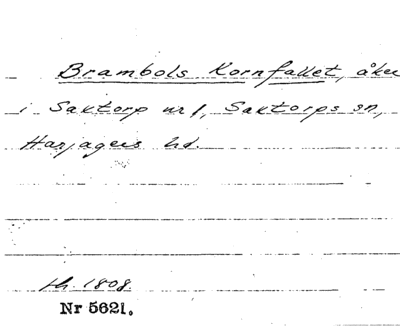 Brambols Kornfallet, åker
i Saxtorp nr 1, Saxtorps sn,
Harjagers hd.
th. 1808.
Nr 5621.